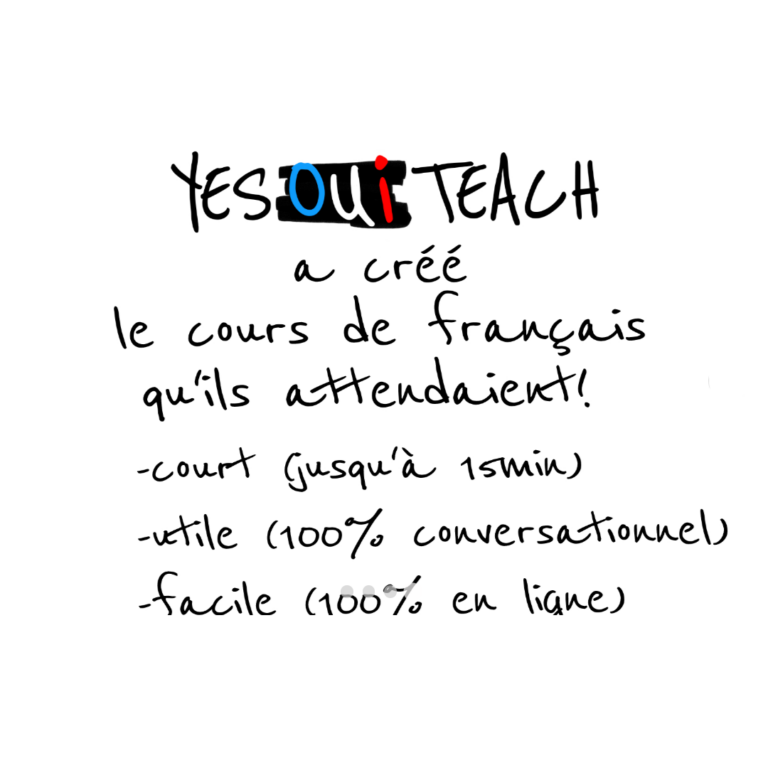 YES OUi TEACH
a créé
le cours de français
qu'ils attendaient!
-court (jusqu'à 15min)
-utile (100% conversationnel)
-facile (100% en ligne)